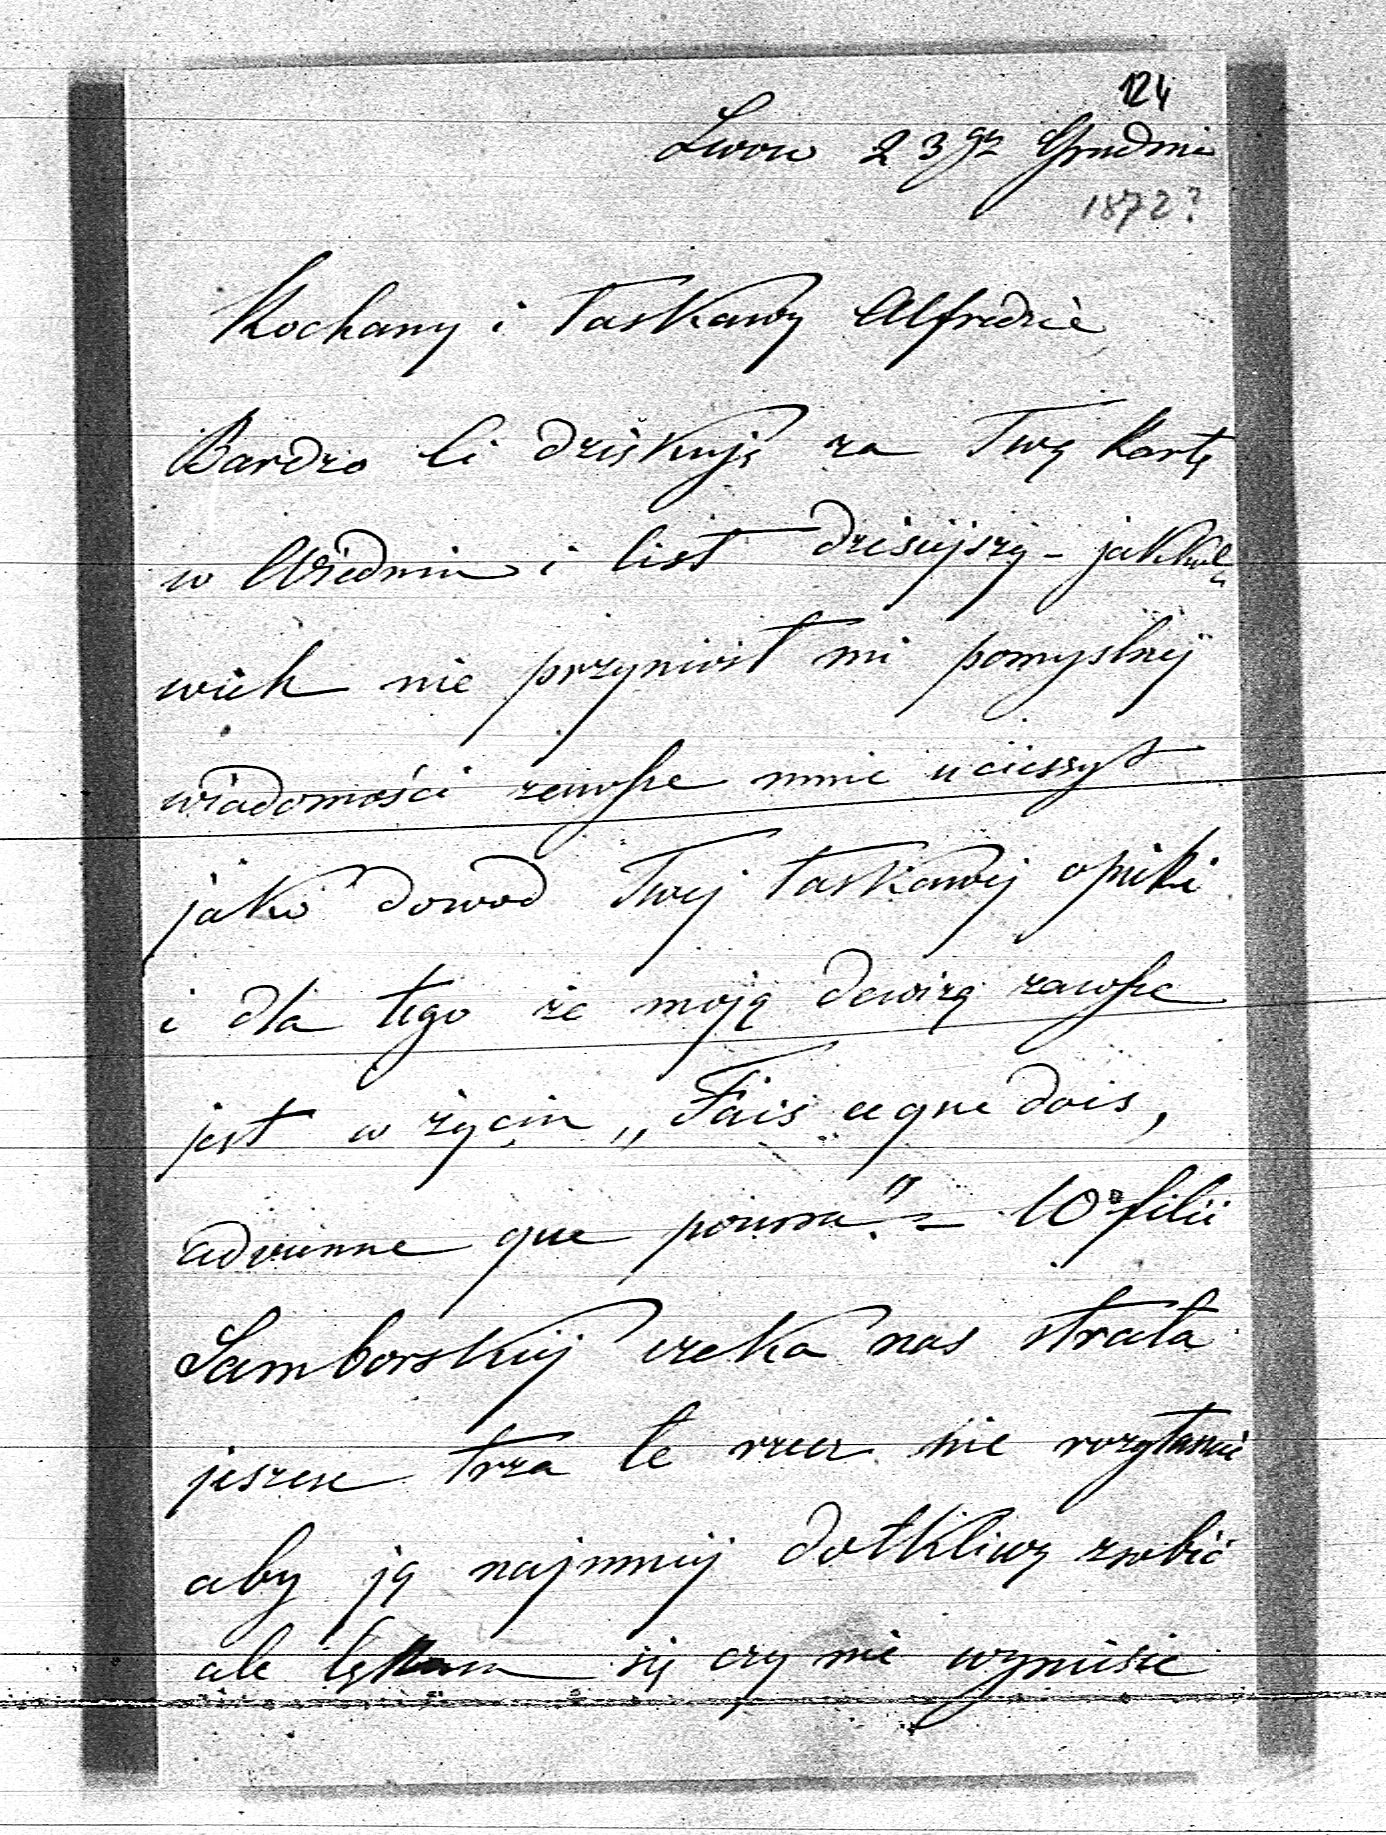 124
Lwow 23go Grudnia
1872?
Kochany i łaskawy Alfredzie
Bardzo Ci dziękuję za Twą kartę
w Wiedniu i list dzisiejszy - jakkol
wiek nie przyniosł mi pomyslnej
wiadomości zawsze mnie ucieszył
jako dowod Twej łaskawej opieki
i dla tego że moją dewizą zawsze
jest w życiu „Fais ce que dois,
advienne que pourra" - 10° filii
Samborskiej czeka nas strata
jeszcze trza te rzecz nie
aby ją najmniej dotkliwą zrobić
ale lękam się czy nie wyniesie